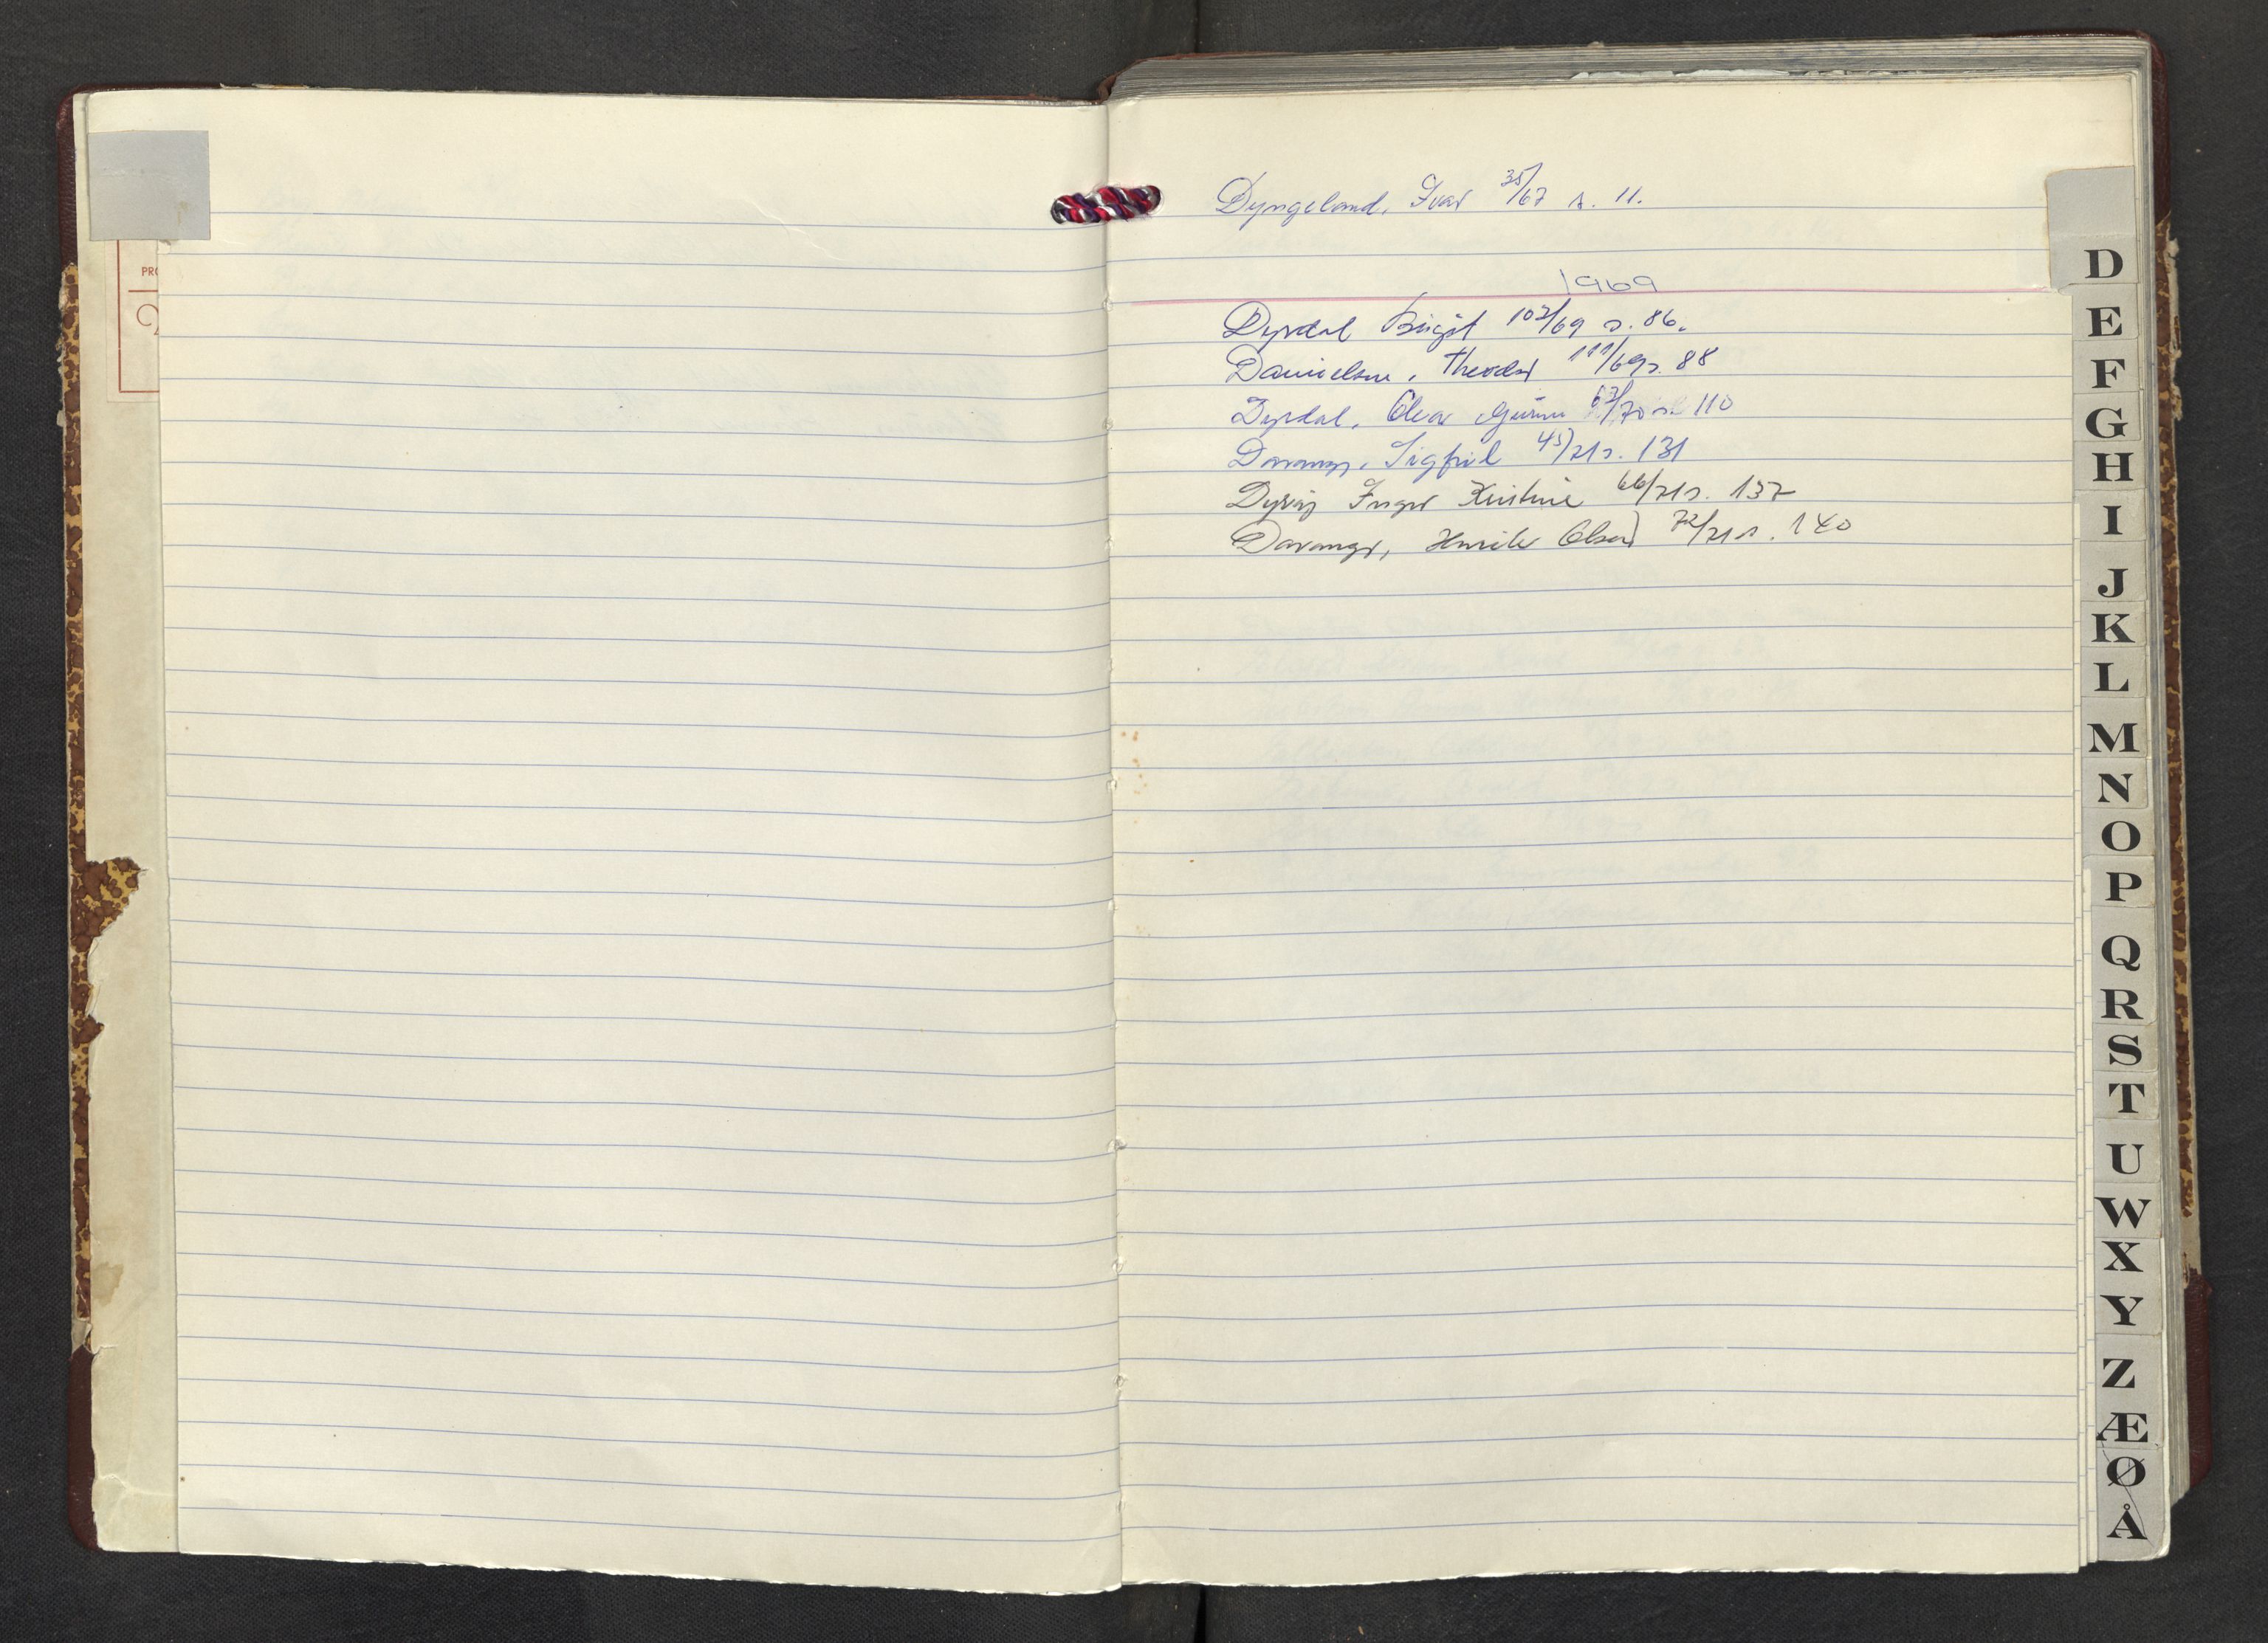 PRO
Dyngeland, Ivar 35/67 s. 11.
1969
Dyrdal Birgit 102/69 s. 86.
Danielsen, Theodor 111/69 s. 88
Dyrdal, Olea 63/70 s. 110
Davanger, Sigfrid 45/71 s. 131
Dyring Inger Kristine 66/71 s. 137
Davanger, Henrik Olsen 72/71 s. 140
D
E
F
G
H
I
J
K
L
M
N
O
P
Q
R
S
T
U
W
X
Y
Z
Æ
Ø
Å